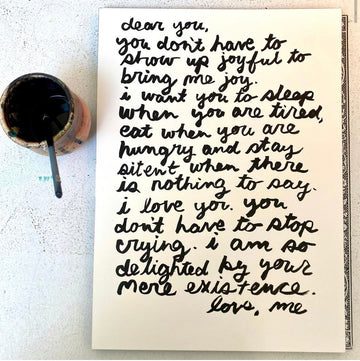 dear you,
you don't have to
show up joyful to
bring me joy.
i want you to sleep
when you are tired,
eat when you are
hungry and stay
silent when there
is nothing to say.
i love you. you
don't have to stop
crying. i am so
delighted by your
mere existence.
love, me